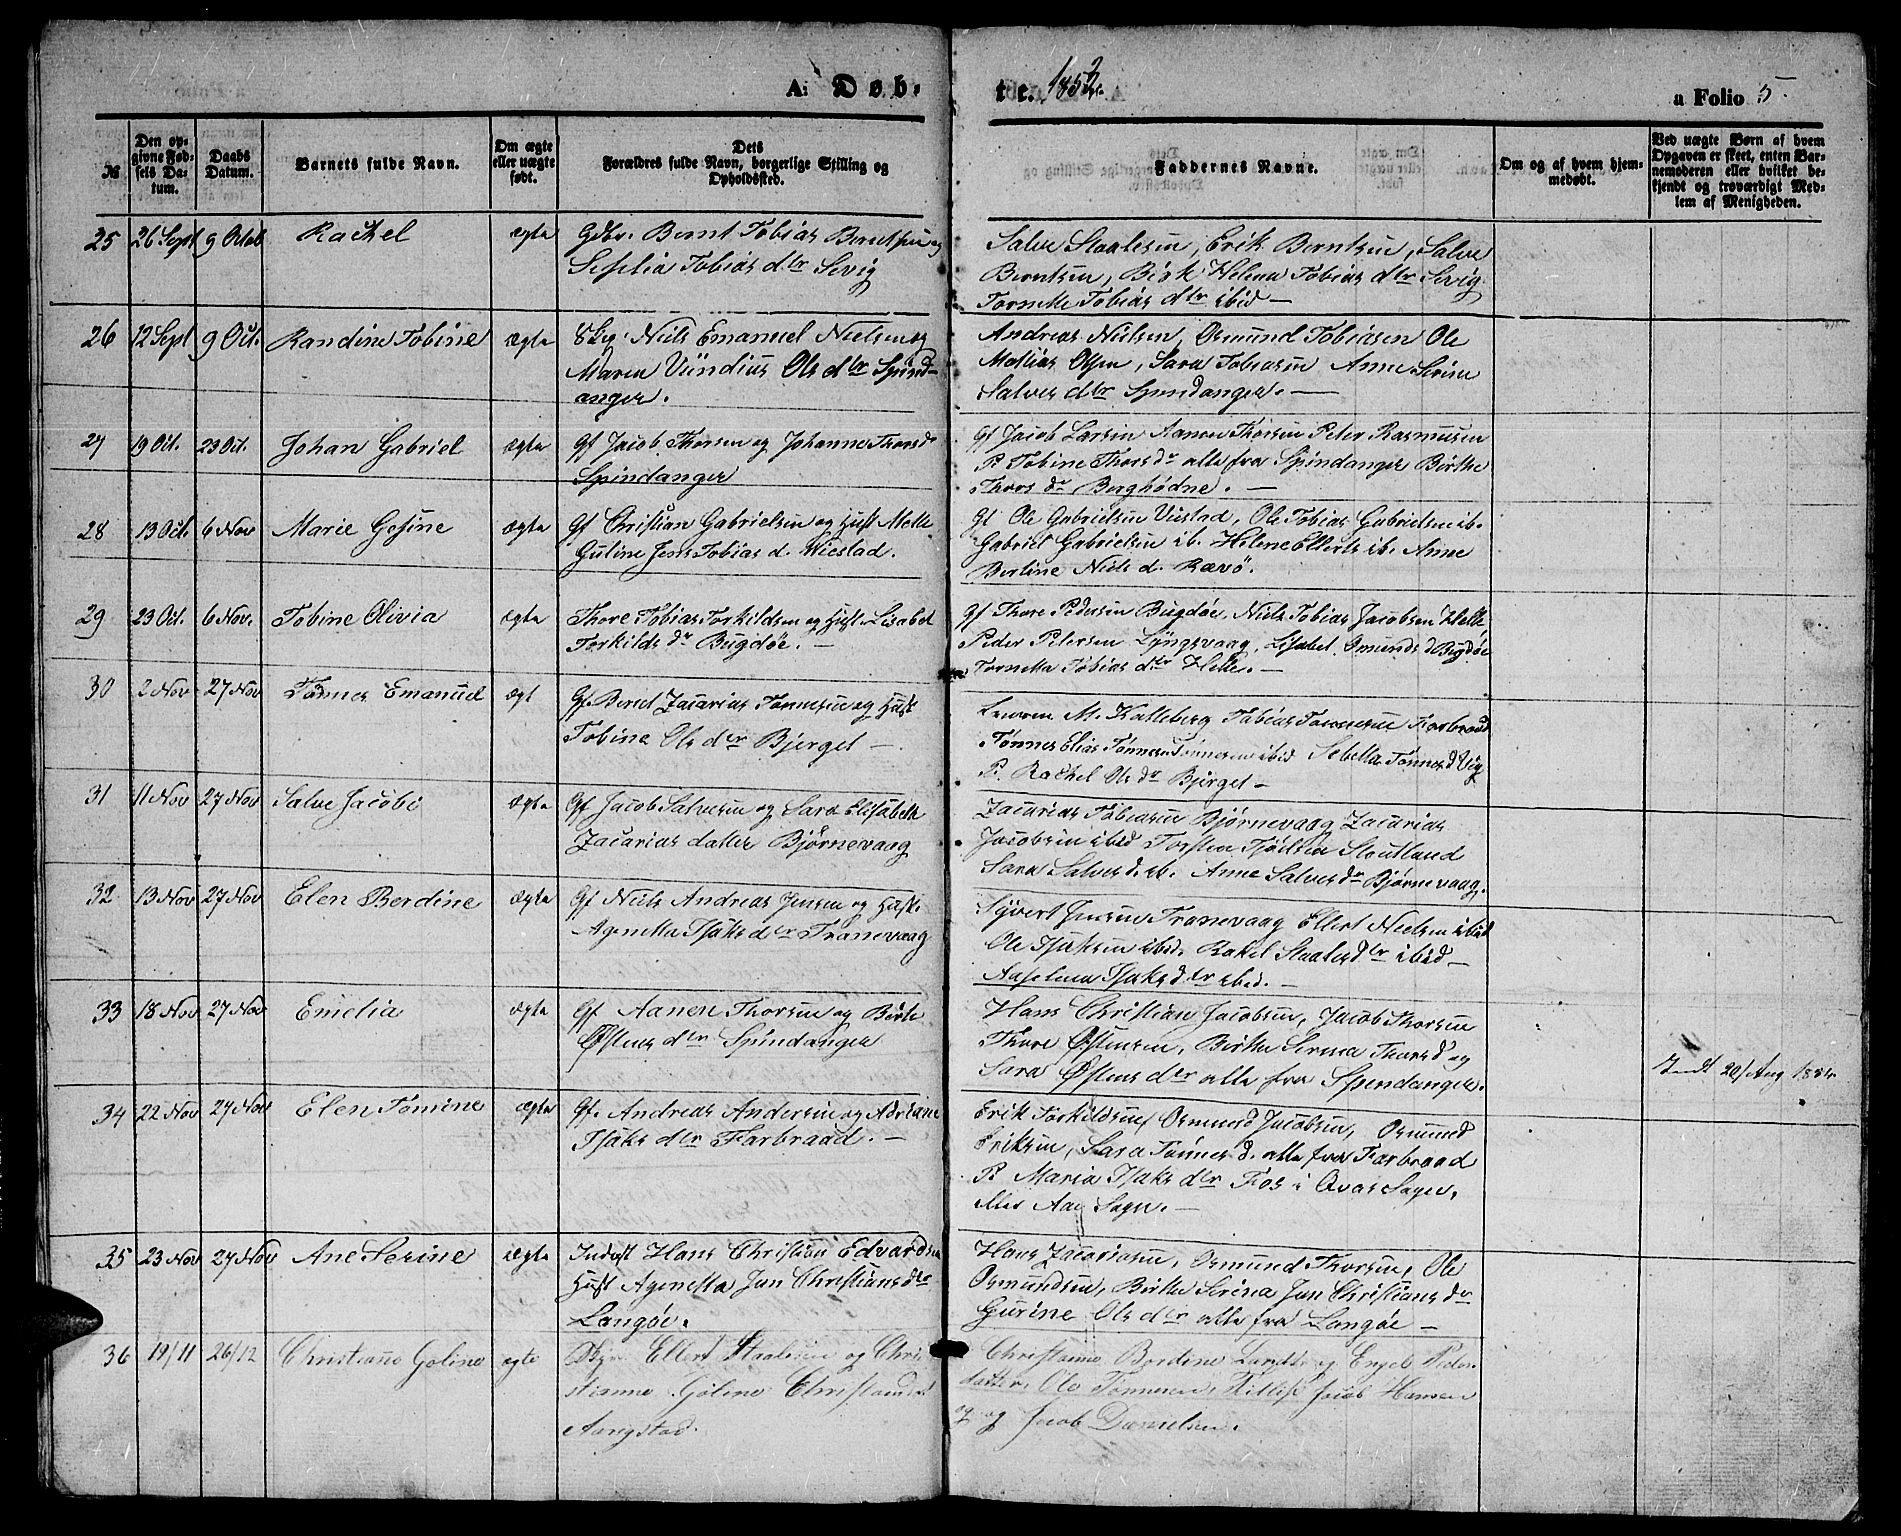 A: Døb-
te. 1852.
a Folio 5.
№
Den opgivne Fødsels Datum.
Daabs Datum.
Barnets fulde Navn.
Om ægte eller uægte født.
Dets Forældres fulde Navn, borgerlige Stilling og Opholdssted.
Faddernes Navne.
Om og af hvem hjemmedøbt.
Ved uægte Børn af hvem Opgaven er skeet, enten Barnemoderen eller hvilket bekjendt og troværdigt Medlem af Menigheden.
25 26 Sept 9 Octob Rachel ægte Gdbr. Bernt Tobias Berntsen og
Sefelia Tobias dtr Sevig
Salve Staalesen, Erik Berntsen, Salve
Berntsen, Helena Tobias dtr Sevig
Tornette Tobias dtr ibid —
26 12 Sept 9 Oct. Randine Tobine ægte Niels Emanuel Nielsen og
Maren Ols dtr Spind-
anger.
Andreas Nielsen, Osmund Tobiasen Ole
Mathias Olsen, Sara Tobiasen Anne Serine
Salves dtr Spindanger. —
27 19 Oct. 23 Oct. Johan Gabriel ægte Gf Jacob Thorsen og Johanne Thorsdr
Spindanger
Gf Jacob Larsen Aanen Thorsen Peter Rasmusen
P. Tobine Thorsdr alle fra Spindanger Birthe
Thors dr Berghødne. —
28 13 Oct. 6 Nov Marie Gesine ægte Gf Christian Gabrielsen og Hust Mette
Guline Jens Tobias d. Wiestad.
Gf Ole Gabrielsen Viestad, Ole Tobias Gabrielsen ib.
Gabriel Gabrielsen ib. Helene Ellerts ib. Anne
Berline Niels d. Rævø.
29 23 Oct. 6 Nov. Tobine Olivia ægte Thore Tobias Torkildsen og Hust. Lisabet
Torkilds dr Bugdøe. —
Gf Thore Pedersen Bugdøe, Niels Tobias Jacobsen Helle
Peder Petersen Lyngsvaag, Lisabet Omunds d Bugdøe
Tornetta Tobias dtr Helle. —
30 2 Nov 27 Nov Tønnes Emanuel ægt Gf. Berent Zacarias Tønnesen og Hust
Tobine Ols dtr Bjerget —
M. Kalleberg Tobias Tønnesen Farbraad
Tønnes Elias Tønnesen ibid Sebella Tønnes d Vig
P. Rachel Ols dr Bjerget —
31 11 Nov 27 Nov Salve Jacobi ægte Gf Jacob Salvesen og Sara Elisabeth
Zacarias datter Bjørnevaag
Zacarias Tobiasen Bjørnevaag Zacarias
Jacobsen ibid Torsten Stoutland
Sara Salves d. ib. Anne Salves dr Bjørnevaag.
32 13 Nov 27 Nov Elen Berdine ægte Gf Niels Andreas Jensen og Hust.
Agnetta Isaks dtr Tranevaag
Syvert Jensen Tranevaag Ellert Nielsen ibid
Ole Isaksen ibid. Rakel Staales dtr ibid —
Isaks dtr ibid. —
33 18 Nov 27 Nov Emelia ægte Gf Aanen Thorsen og Birte
Østens dtr Spindanger
Hans Christian Jacobsen, Jacob Thorsen
Thore Østensen, Birthe Serina Thorsd og
Sara Østens dtr alle fra Spindanger.
20/Aug 1884
34 22 Nov 27 Nov Elen Tomine ægte Gf. Andreas Andersen og Adriane
Isaks dtr Farbraad. —
Erik Torkildsen, Osmund Jacobsen, Osmund
Eriksen, Sara Tønnes d. alle fra Farbraad
P. Maria Isaks dtr Fos i Qvas Sogn,
eller Aas Sogn. —
35 23 Nov 27 Nov Ane Serine ægte Inderst Hans Christian Edvardsen
Hust Agenetta Jan Christians dtr
Langøe.
Hans Zacariasen, Osmund Thorsen, Ole
Osmundsen, Birthe Serina Jan Christians dr
Gurine Ols dtr alle fra Langøe —
36 19/11 26/12 Christiane Goline ægte Ellert Staalesen og Chri-
stianne Goline
Aangstad.
Christianne Bordine og Engel Peder-
datter, Ole Tønnesen, Jacob Hansen
og Jacob Danielsen.